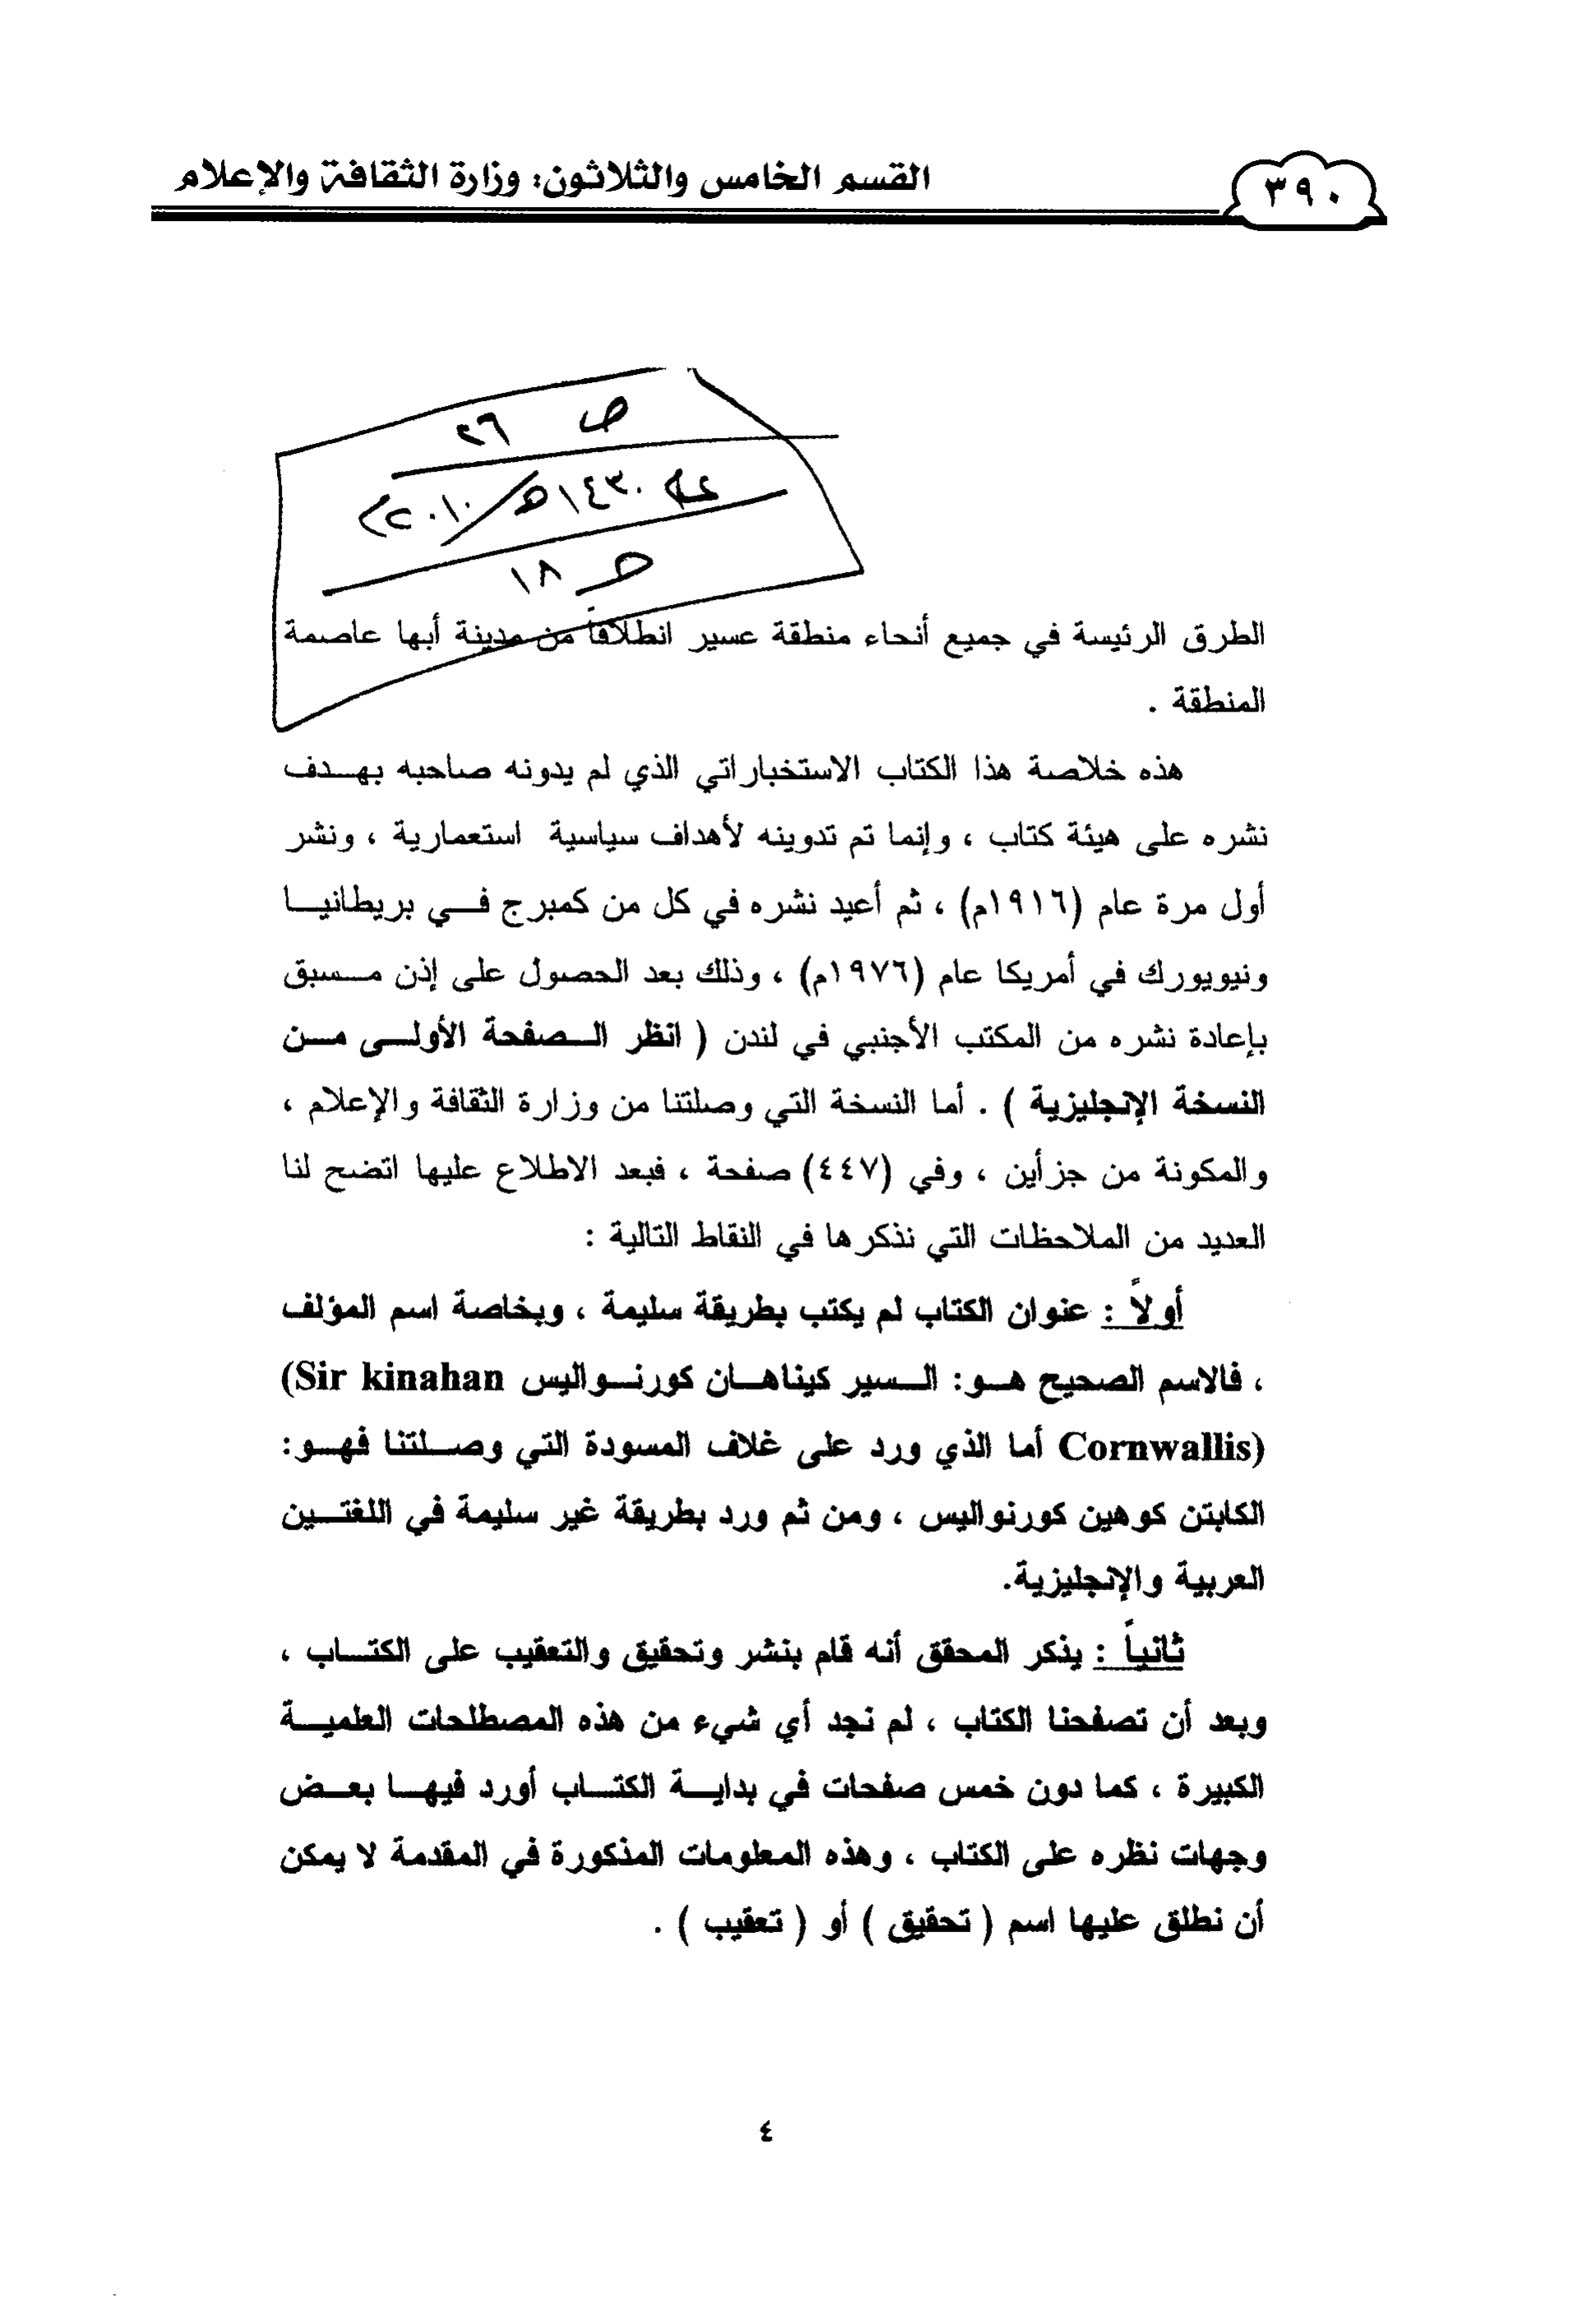 ٣٩٠
القسم الخامس والثلاثون: وزارة الثقافة والإعلام
ص ٢٦
عام ١٤٣٠هـ/٢٠١٠م
حـ ١٨
الطرق الرئيسة في جميع أنحاء منطقة عسير انطلاقاً من مدينة أبها عاصمة
المنطقة .
هذه خلاصة هذا الكتاب الاستخباراتي الذي لم يدونه صاحبه بهدف
نشره على هيئة كتاب ، وإنما تم تدوينه لأهداف سياسية استعمارية ، ونشر
أول مرة عام (١٩١٦م) ، ثم أعيد نشره في كل من كمبرج في بريطانيا
ونيويورك في أمريكا عام (١٩٧٦م) ، وذلك بعد الحصول على إذن مسبق
بإعادة نشره من المكتب الأجنبي في لندن ( انظر الصفحة الأولى من
النسخة الإنجليزية ) . أما النسخة التي وصلتنا من وزارة الثقافة والإعلام ،
والمكونة من جزأين ، وفي (٤٤٧) صفحة ، فبعد الاطلاع عليها اتضح لنا
العديد من الملاحظات التي نذكرها في النقاط التالية :
أولاً : عنوان الكتاب لم يكتب بطريقة سليمة ، وبخاصة اسم المؤلف
، فالاسم الصحيح هو: السير كيناهان كورنواليس (Sir kinahan
Cornwallis) أما الذي ورد على غلاف المسودة التي وصلتنا فهو:
الكابتن كوهين كورنواليس ، ومن ثم ورد بطريقة غير سليمة في اللغتين
العربية والإنجليزية.
ثانياً : يذكر المحقق أنه قام بنشر وتحقيق والتعقيب على الكتاب ،
وبعد أن تصفحنا الكتاب ، لم نجد أي شيء من هذه المصطلحات العلمية
الكبيرة ، كما دون خمس صفحات في بداية الكتاب أورد فيها بعض
وجهات نظره على الكتاب ، وهذه المعلومات المذكورة في المقدمة لا يمكن
أن نطلق عليها اسم ( تحقيق ) أو ( تعقيب ) .
٤